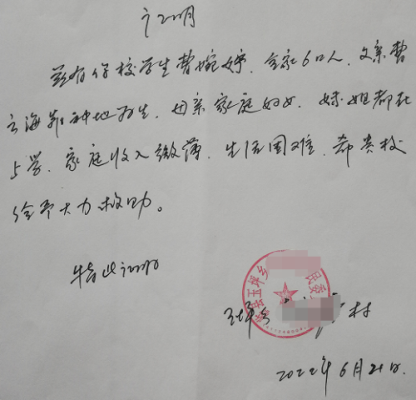 证明
兹有你校学生曹婉婷，全家6口人，父亲曹
云海靠种地为生，母亲家庭妇女，妹姐都在
上学，家庭收入微薄，生活困难，希贵校
给予大力救助。
特此证明
县玉皇乡
村
2022年6月21日.